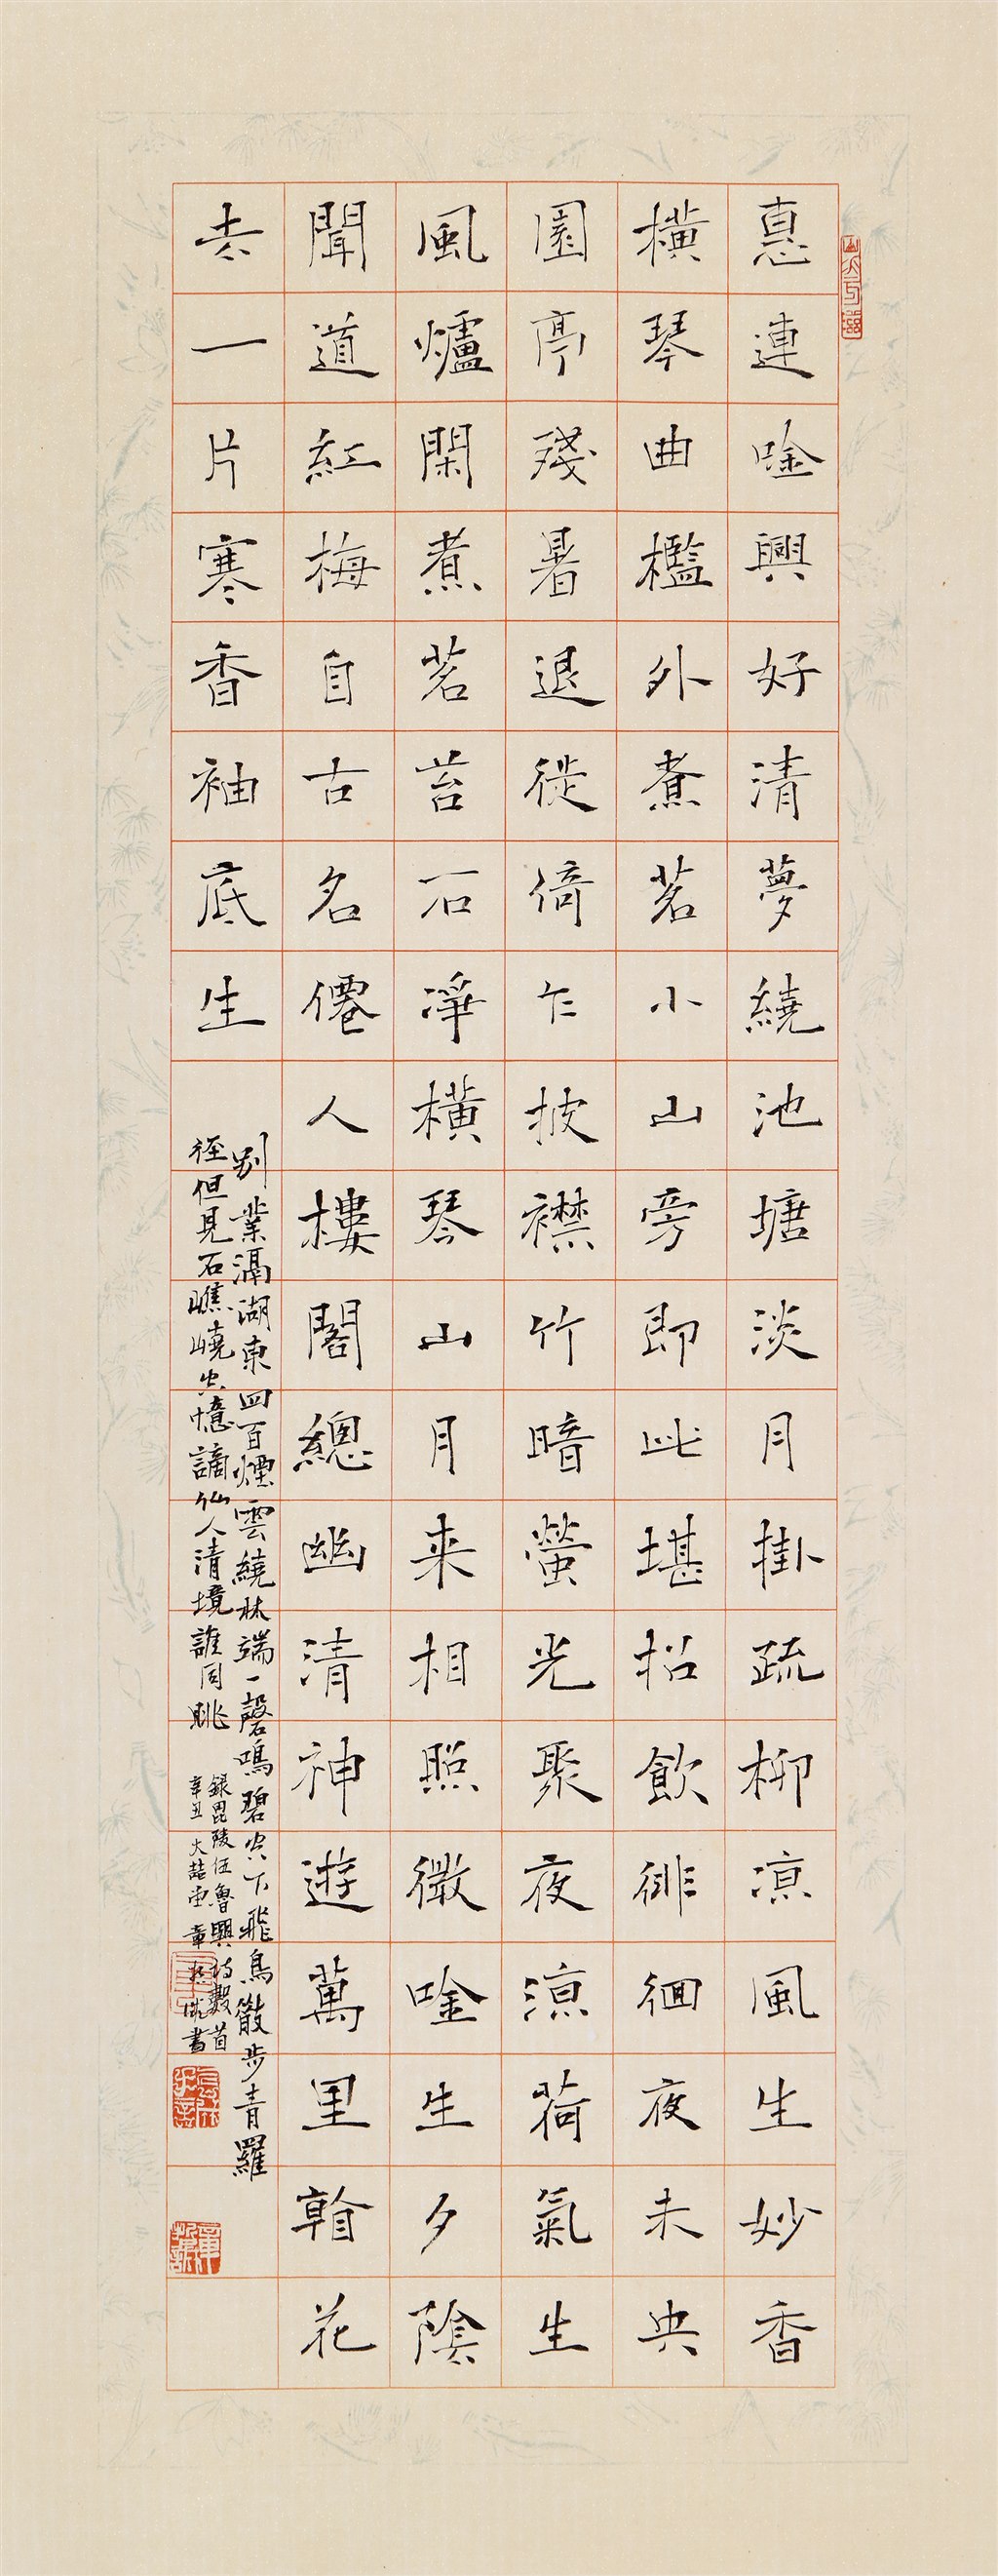 惠連唫興好清夢繞池塘淡月掛疏柳涼風生妙香
橫琴曲檻外煮茗小山旁即此堪招飲徘徊夜未央
園亭殘暑退徙倚乍披襟竹暗螢光聚夜涼荷氣生
風爐閑煮茗苔石凈橫琴山月来相照微唫生夕陰
聞道紅梅自古名僊人樓閣總幽清神遊萬里翰花
去一片寒香袖底生
別業滆湖東四百煙雲繞林端一磬鳴碧空下飛鳥散步青羅
徑但見石瞧嶢忽憶謫仙人清境誰同眺
録毘陵伍魯興詩數首
辛丑大喆堂章書